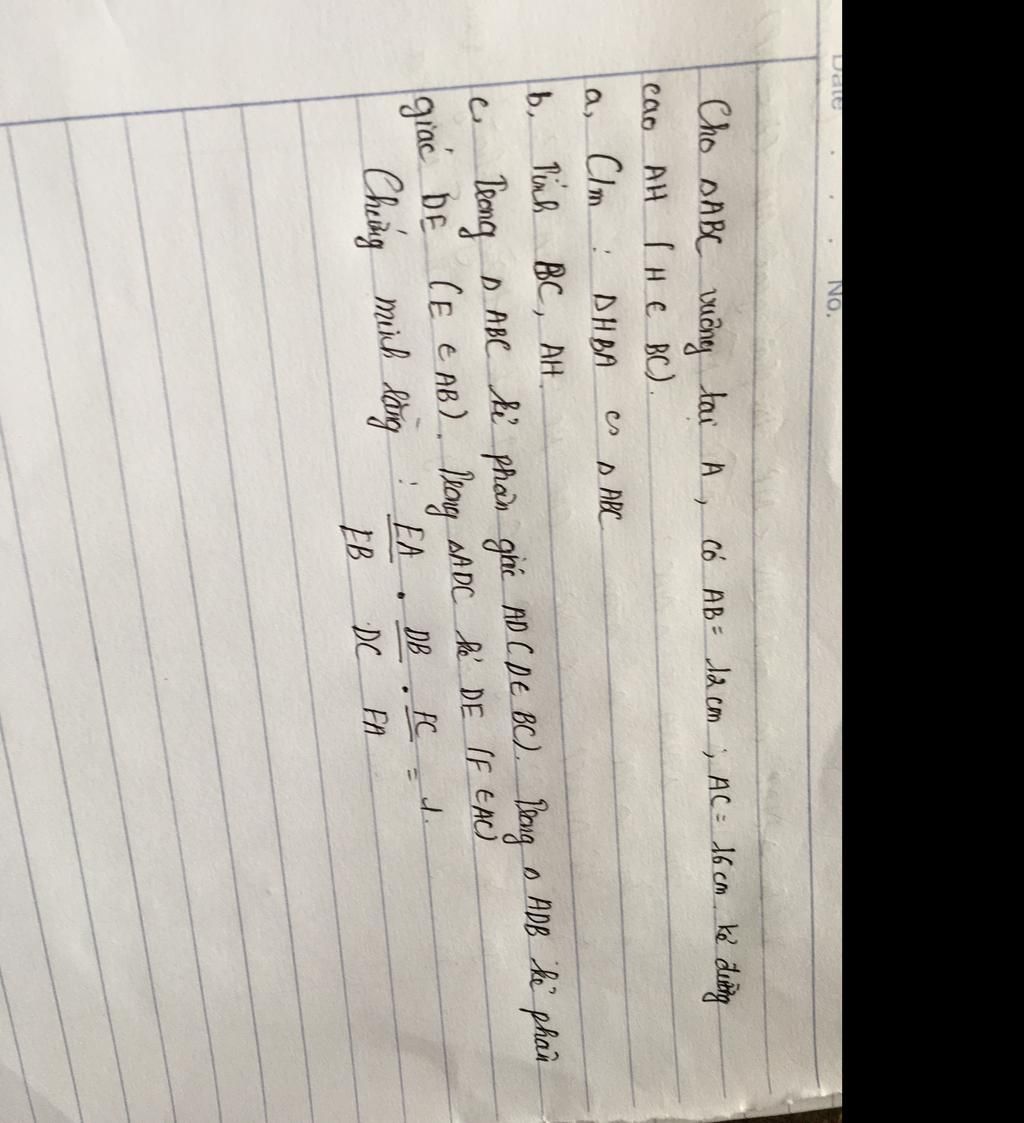 Date . . No.
Cho ΔABC vuông tại A, có AB = 12cm; AC = 16cm. kẻ đường
cao AH (H ∈ BC).
a, C/m : ΔHBA ∽ ΔABC
b, Tính BC, AH.
c, Trong ΔABC kẻ phân giác AD (D ∈ BC). Trong ΔADB kẻ phân
giác DE (E ∈ AB). Trong ΔADC kẻ DF (F ∈ AC)
Chứng minh rằng : EA/EB . DB/DC . FC/FA = 1.